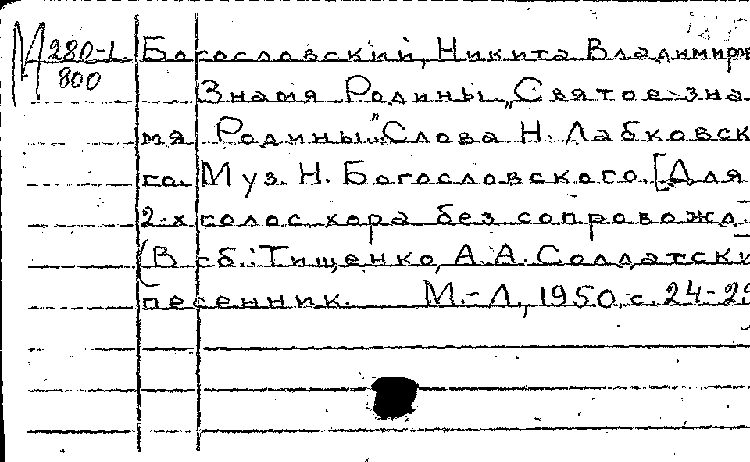 М 280-1
800
Богословский, Никита Владимиро
Знамя Родины „Святое зна-
мя Родины". Слова Н. Лабковск
го. Муз. Н. Богословского. [Для
2-х голос. хора без сопровожд.
(В сб.: Тищенко, А. А. Солдатски
песенник. М.-Л., 1950, с. 24-29